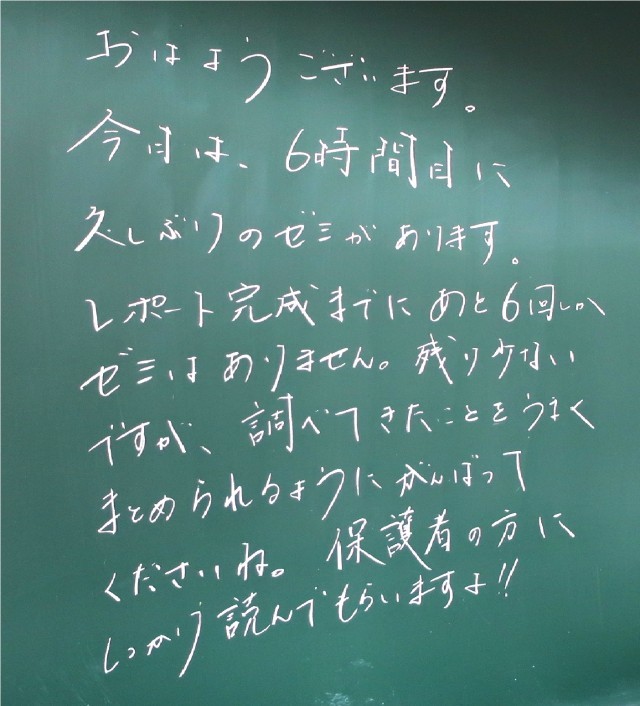 おはようございます。
今日は、6時間目に
久しぶりのゼミがあります。
レポート完成までにあと6回しか
ゼミはありません。残り少ない
ですが、調べてきたことをうまく
まとめられるようにがんばって
くださいね。保護者の方に
しっかり読んでもらいますよ!!